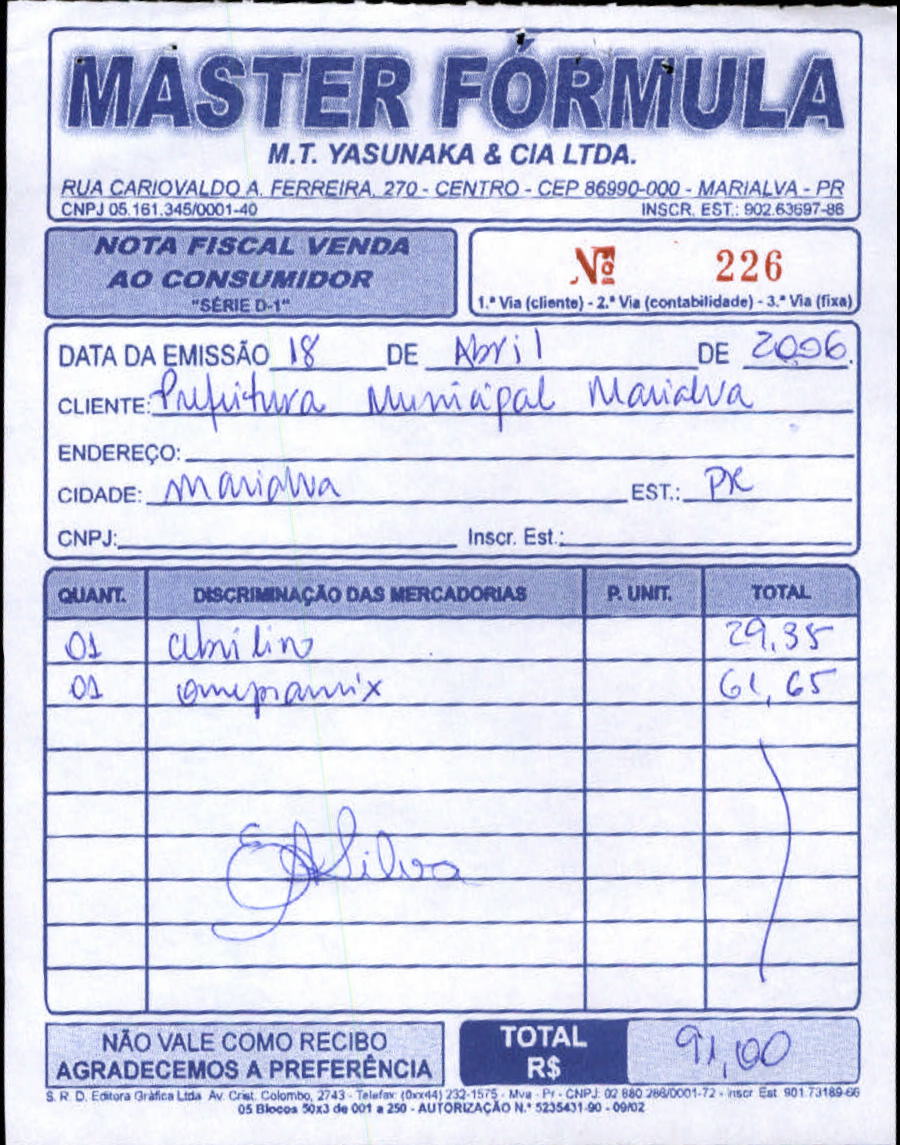 MASTER FÓRMULA
M.T. YASUNAKA & CIA LTDA.
RUA CARIOVALDO A. FERREIRA, 270 - CENTRO - CEP 86990-000 - MARIALVA - PR
CNPJ 05.161.345/0001-40 INSCR. EST.: 902.63697-86
NOTA FISCAL VENDA
AO CONSUMIDOR
"SÉRIE D-1"
Nº 226
1.ª Via (cliente) - 2.ª Via (contabilidade) - 3.ª Via (fixa)
DATA DA EMISSÃO 18 DE Abril DE 2006.
CLIENTE: Prefeitura Municipal Marialva
ENDEREÇO:
CIDADE: Marialva EST.: PR
CNPJ: Inscr. Est.:
QUANT. DISCRIMINAÇÃO DAS MERCADORIAS P. UNIT. TOTAL
01 29,35
01 61,65
Silva
NÃO VALE COMO RECIBO
AGRADECEMOS A PREFERÊNCIA
TOTAL
R$ 91,00
S. R. D. Editora Gráfica Ltda Av. Crist. Colombo, 2743 - Telefax: (0xx44) 232-1575 - Mva - Pr - CNPJ: 02 880 286/0001-72 - Inscr Est 901.73189-66
05 Blocos 50x3 de 001 a 250 - AUTORIZAÇÃO N.º 5235431-90 - 09/02